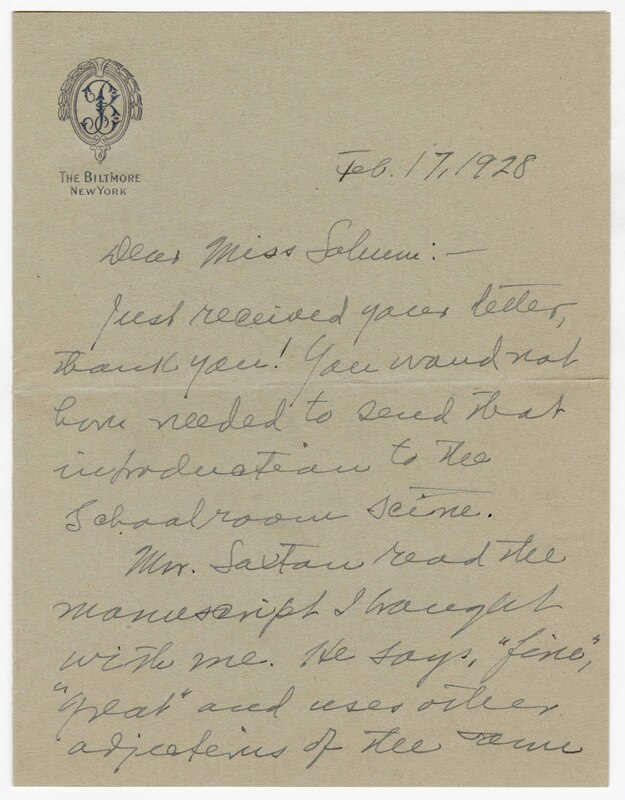 THE BILTMORE
NEW YORK
Feb. 17, 1928
Dear Miss Solum:—
Just received your letter,
thank you! You woud not
have needed to send that
introduction to the
Schoolroom scene.
Mr. Saxton read the
manuscript I brought
with me. He says, "fine",
"great" and uses other
adjectives of the same